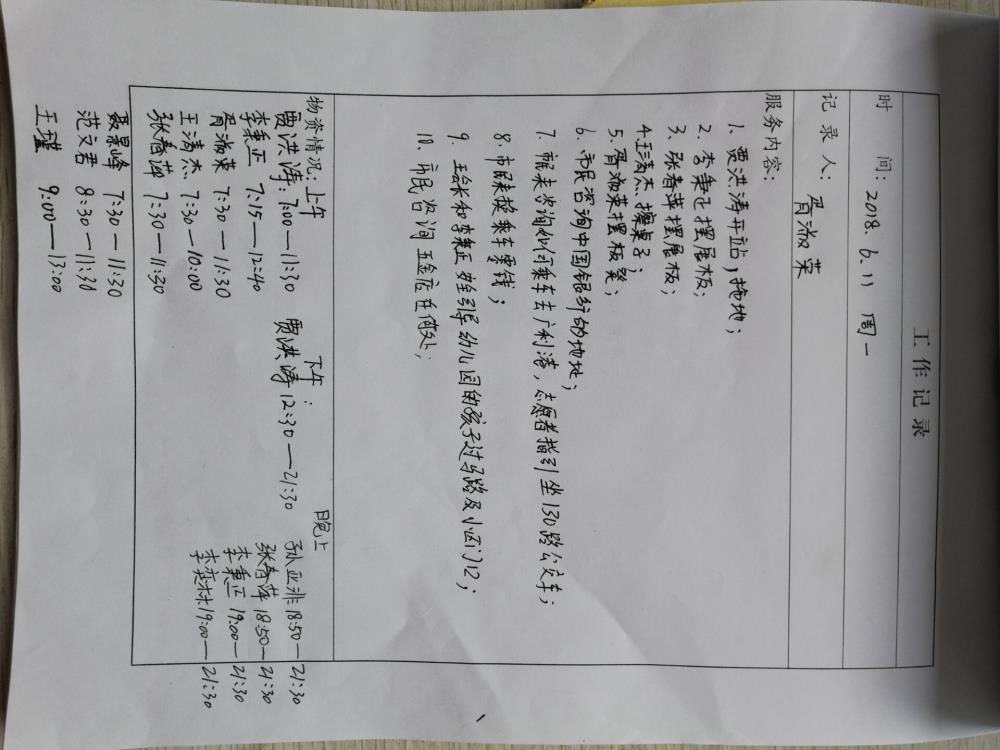 工作记录
时间: 2018.6.11 周一
记录人: 胥淑荣
服务内容:
1. 贾洪涛开站,拖地;
2. 李秉正摆展板;
3. 张春萍摆展板;
4.王清杰擦桌子;
5.胥淑荣摆板凳;
6.市民咨询中国银行的地址;
7. 市民来咨询如何乘车去广利港,志愿者指引坐130路公交车;
8. 市民来换乘车零钱;
9. 和李秉正姓引导幼儿园的孩子过马路及小区门口;
10. 市民咨询五金店在何处;
物资情况: 上午
贾洪涛: 7:00—11:30
李秉正 7:15—12:40
胥淑荣 7:30—11:30
王清杰 7:30—10:00
张春萍 7:30—11:30
聂景峰 7:30—11:30
范文君 8:30—11:30
王瑾 9:00—13:00
下午:
贾洪涛 12:30—21:30
晚上
孙亚非 18:50—21:30
张春萍 18:50—21:30
李秉正 19:00—21:30
李奕林 19:00—21:30